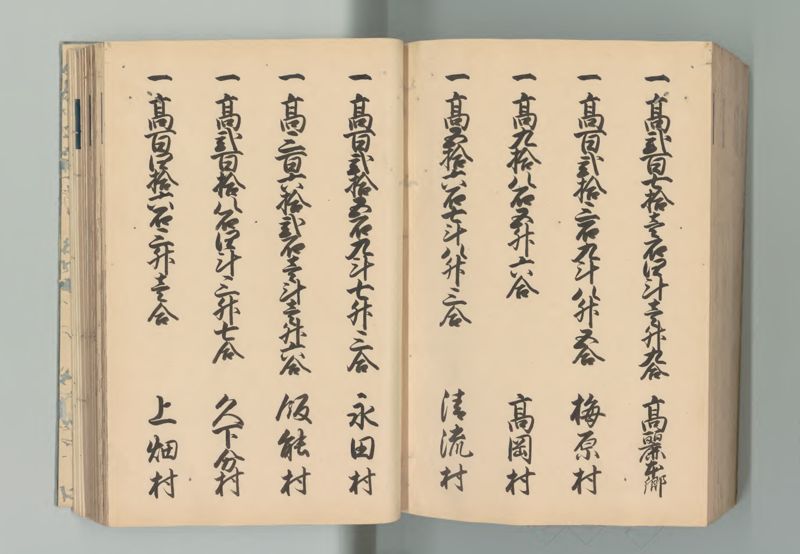 一 高弐百七拾壱石四斗壱升九合 高麗本郷
一 高百弐拾三石九斗八升五合 梅原村
一 高九拾八石五升六合 高岡村
一 高五拾六石七斗八升三合 清流村
一 高百弐拾五石九斗七升三合 永田村
一 高三百六拾弐石壱斗壱升六合 飯能村
一 高弐百拾八石四斗三升七合 久下分村
一 高百四拾六石三升壱合 上畑村